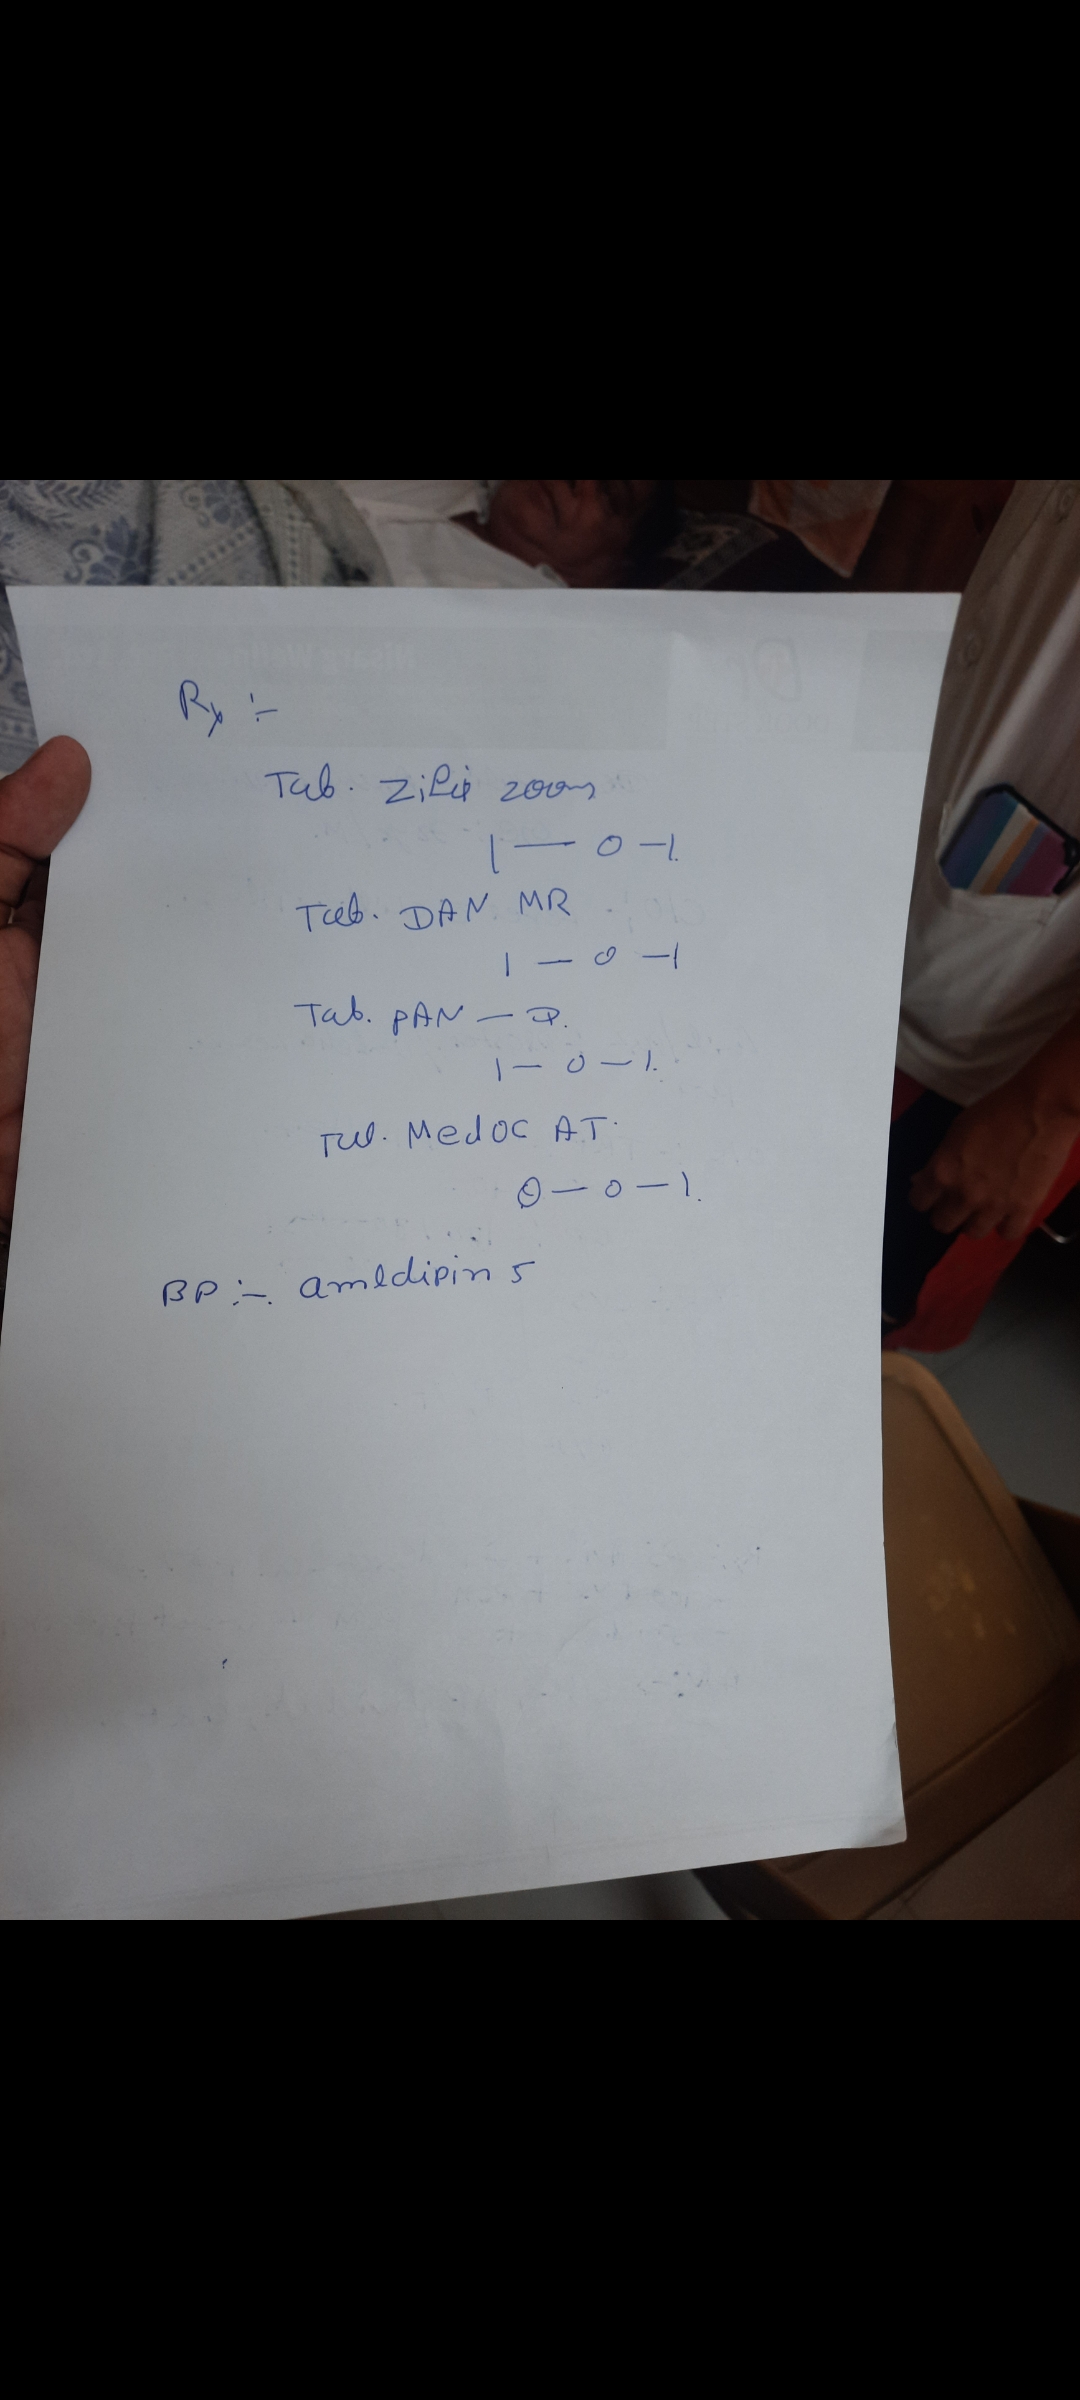 Rx :-
Tab. Zifix 200mg
1 — 0 — 1.
Tab. DAN MR
1 — 0 — 1
Tab. PAN — D.
1 — 0 — 1.
Tab. Medoc AT.
0 — 0 — 1.
BP :-. amldipin 5